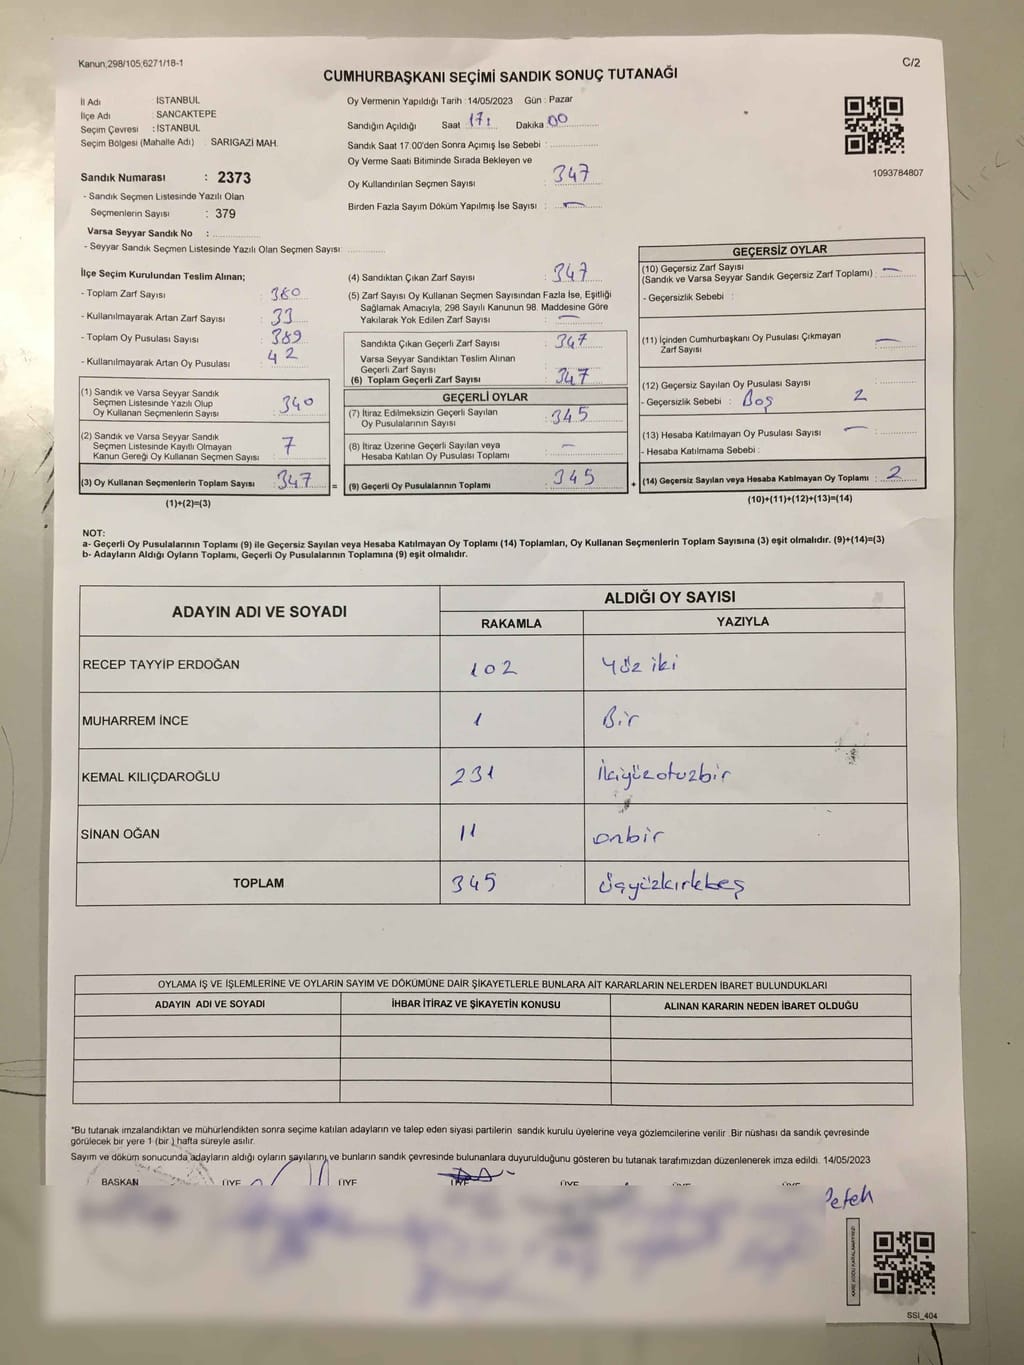 Kanun;298/105;6271/18-1
C/2
CUMHURBAŞKANI SEÇİMİ SANDIK SONUÇ TUTANAĞI
İl Adı : İSTANBUL
İlçe Adı : SANCAKTEPE
Seçim Çevresi : İSTANBUL
Seçim Bölgesi (Mahalle Adı) : SARIGAZİ MAH.
Sandık Numarası : 2373
- Sandık Seçmen Listesinde Yazılı Olan
Seçmenlerin Sayısı : 379
Varsa Seyyar Sandık No :
- Seyyar Sandık Seçmen Listesinde Yazılı Olan Seçmen Sayısı:
Oy Vermenin Yapıldığı Tarih :14/05/2023 Gün : Pazar
Sandığın Açıldığı Saat 17: Dakika 00
Sandık Saat 17.00'den Sonra Açımış İse Sebebi :
Oy Verme Saati Bitiminde Sırada Bekleyen ve
Oy Kullandırılan Seçmen Sayısı : 347
Birden Fazla Sayım Döküm Yapılmış İse Sayısı : —
1093784807
İlçe Seçim Kurulundan Teslim Alınan;
- Toplam Zarf Sayısı : 380
- Kullanılmayarak Artan Zarf Sayısı : 33
- Toplam Oy Pusulası Sayısı : 389
- Kullanılmayarak Artan Oy Pusulası : 42
(1) Sandık ve Varsa Seyyar Sandık
Seçmen Listesinde Yazılı Olup
Oy Kullanan Seçmenlerin Sayısı : 340
(2) Sandık ve Varsa Seyyar Sandık
Seçmen Listesinde Kayıtlı Olmayan
Kanun Gereği Oy Kullanan Seçmen Sayısı : 7
(3) Oy Kullanan Seçmenlerin Toplam Sayısı : 347
(1)+(2)=(3)
(4) Sandıktan Çıkan Zarf Sayısı : 347
(5) Zarf Sayısı Oy Kullanan Seçmen Sayısından Fazla İse, Eşitliği
Sağlamak Amacıyla, 298 Sayılı Kanunun 98. Maddesine Göre
Yakılarak Yok Edilen Zarf Sayısı : —
Sandıkta Çıkan Geçerli Zarf Sayısı : 347
Varsa Seyyar Sandıktan Teslim Alınan
Geçerli Zarf Sayısı :
(6) Toplam Geçerli Zarf Sayısı : 347
GEÇERLİ OYLAR
(7) İtiraz Edilmeksizin Geçerli Sayılan
Oy Pusulalarının Sayısı : 345
(8) İtiraz Üzerine Geçerli Sayılan veya
Hesaba Katılan Oy Pusulası Toplamı : —
= (9) Geçerli Oy Pusulalarının Toplamı : 345
GEÇERSİZ OYLAR
(10) Geçersiz Zarf Sayısı
(Sandık ve Varsa Seyyar Sandık Geçersiz Zarf Toplamı) : —
- Geçersizlik Sebebi :
(11) İçinden Cumhurbaşkanı Oy Pusulası Çıkmayan
Zarf Sayısı : —
(12) Geçersiz Sayılan Oy Pusulası Sayısı :
- Geçersizlik Sebebi : Boş 2
(13) Hesaba Katılmayan Oy Pusulası Sayısı : —
- Hesaba Katılmama Sebebi :
+ (14) Geçersiz Sayılan veya Hesaba Katılmayan Oy Toplamı : 2
(10)+(11)+(12)+(13)=(14)
NOT:
a- Geçerli Oy Pusulalarının Toplamı (9) ile Geçersiz Sayılan veya Hesaba Katılmayan Oy Toplamı (14) Toplamları, Oy Kullanan Seçmenlerin Toplam Sayısına (3) eşit olmalıdır. (9)+(14)=(3)
b- Adayların Aldığı Oyların Toplamı, Geçerli Oy Pusulalarının Toplamına (9) eşit olmalıdır.
ADAYIN ADI VE SOYADI ALDIĞI OY SAYISI
RAKAMLA YAZIYLA
RECEP TAYYİP ERDOĞAN 102 Yüz iki
MUHARREM İNCE 1 Bir
KEMAL KILIÇDAROĞLU 231 İkiyüzotuzbir
SİNAN OĞAN 11 onbir
TOPLAM 345 Üçyüzkırkbeş
OYLAMA İŞ VE İŞLEMLERİNE VE OYLARIN SAYIM VE DÖKÜMÜNE DAİR ŞİKAYETLERLE BUNLARA AİT KARARLARIN NELERDEN İBARET BULUNDUKLARI
ADAYIN ADI VE SOYADI İHBAR İTİRAZ VE ŞİKAYETİN KONUSU ALINAN KARARIN NEDEN İBARET OLDUĞU
*Bu tutanak imzalandıktan ve mühürlendikten sonra seçime katılan adayların ve talep eden siyasi partilerin sandık kurulu üyelerine veya gözlemcilerine verilir .Bir nüshası da sandık çevresinde
görülecek bir yere 1 (bir ) hafta süreyle asılır.
Sayım ve döküm sonucunda adayların aldığı oyların sayılarını ve bunların sandık çevresinde bulunanlara duyurulduğunu gösteren bu tutanak tarafımızdan düzenlenerek imza edildi. 14/05/2023
BAŞKAN ÜYE ÜYE ÜYE ÜYE
SSİ_404